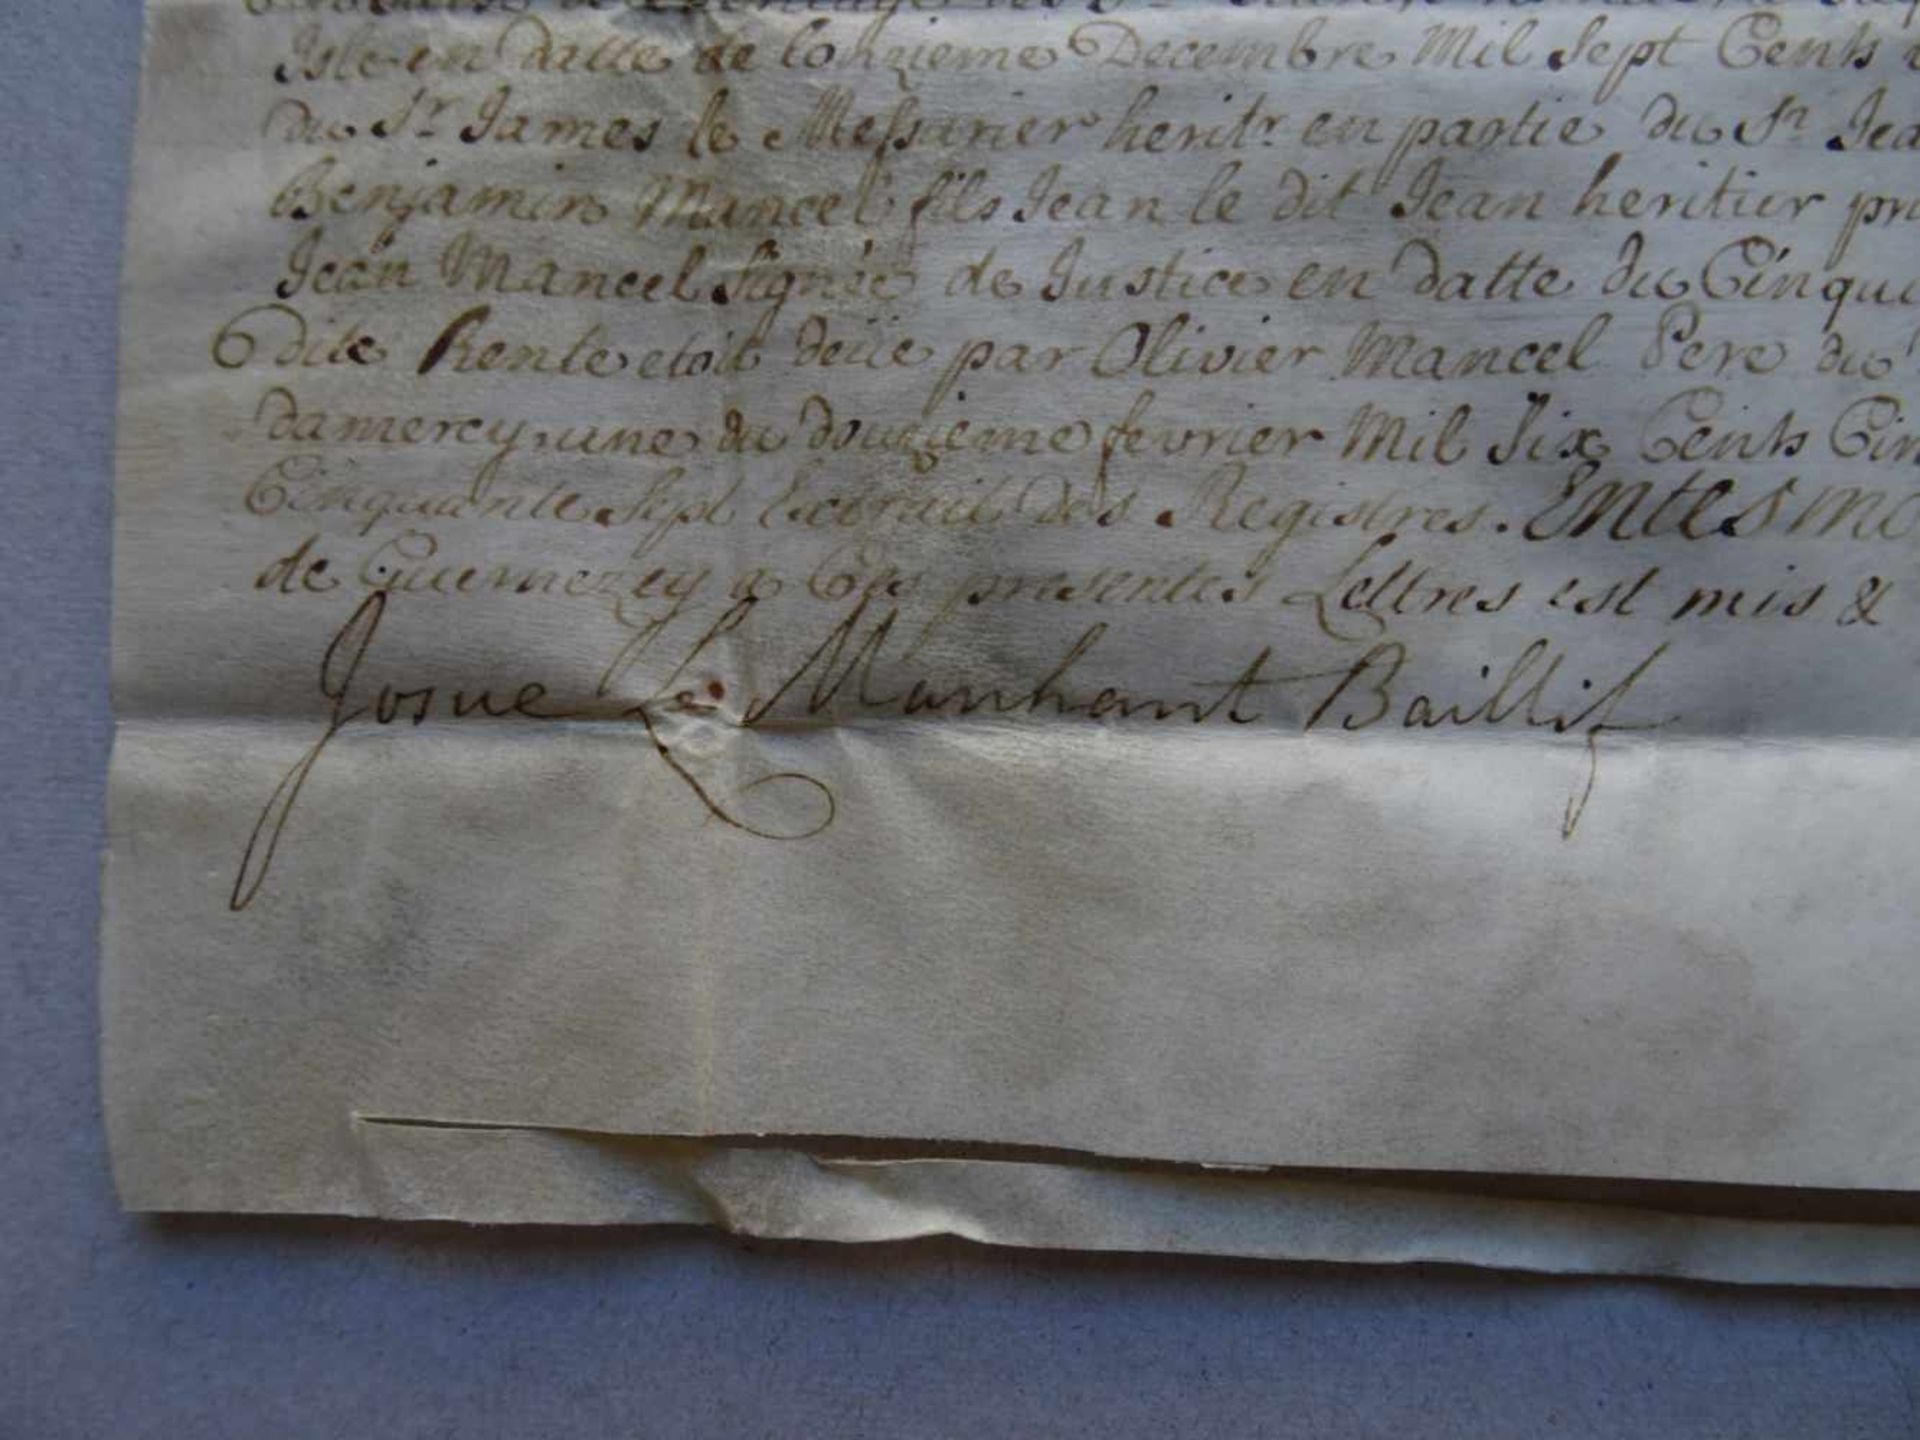 Isle en datte de lonzieme Decembre Mil Sept Cents
du Sr. James le Messurier heritr. en partie du Sr. Jea
Benjamin Mancel fils Jean le dit Jean heritier pr
Jean Mancel Signée de Justice en datte du Cinqui
Dite Rente etoit deüe par Olivier Mancel Pere du
damercy, une du douzieme fevrier Mil Six Cents Cin
Cinquante Sept Extrait des Registres. Entesmo
de Guernezey a Ces presentes Lettres est mis &
Josue Le Marchant Baillif